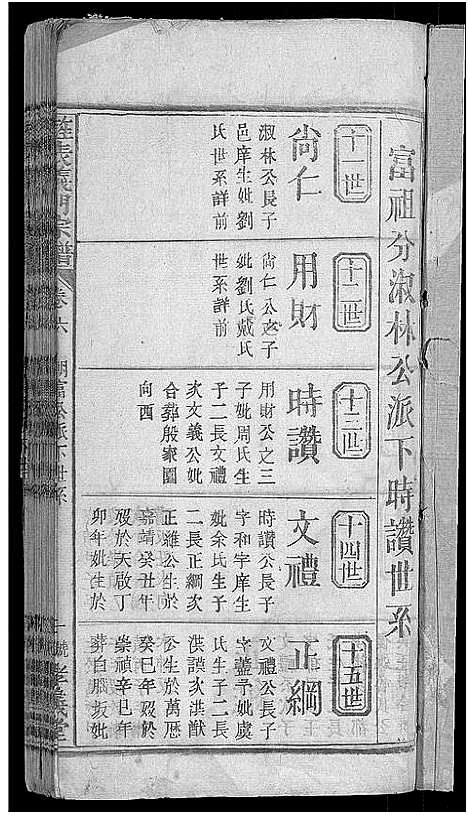 富祖分淑林公派下時讚世系
十一世
尙仁
淑林公長子
邑庠生妣劉
氏世系詳前
十二世
用財
尙仁公之子
妣劉氏戴氏
世系詳前
十三世
時讚
用財公之三
子妣周氏生
子二長文禮
次文義公妣
合葬殷家園
向酉
十四世
文禮
時讚公長子
字和宇庠生
妣余氏生子
二長正綱次
正維公生於
嘉靖癸丑年
歿於天啟丁
卯年妣生於
十五世
正綱
文禮公長子
字蓋予妣虞
氏生子二長
洪謨次洪猷
公生於萬厯
癸巳年歿於
崇禎辛巳年
葬白腦坂妣
義門宗譜
卷六
富公派下世系
孝義堂